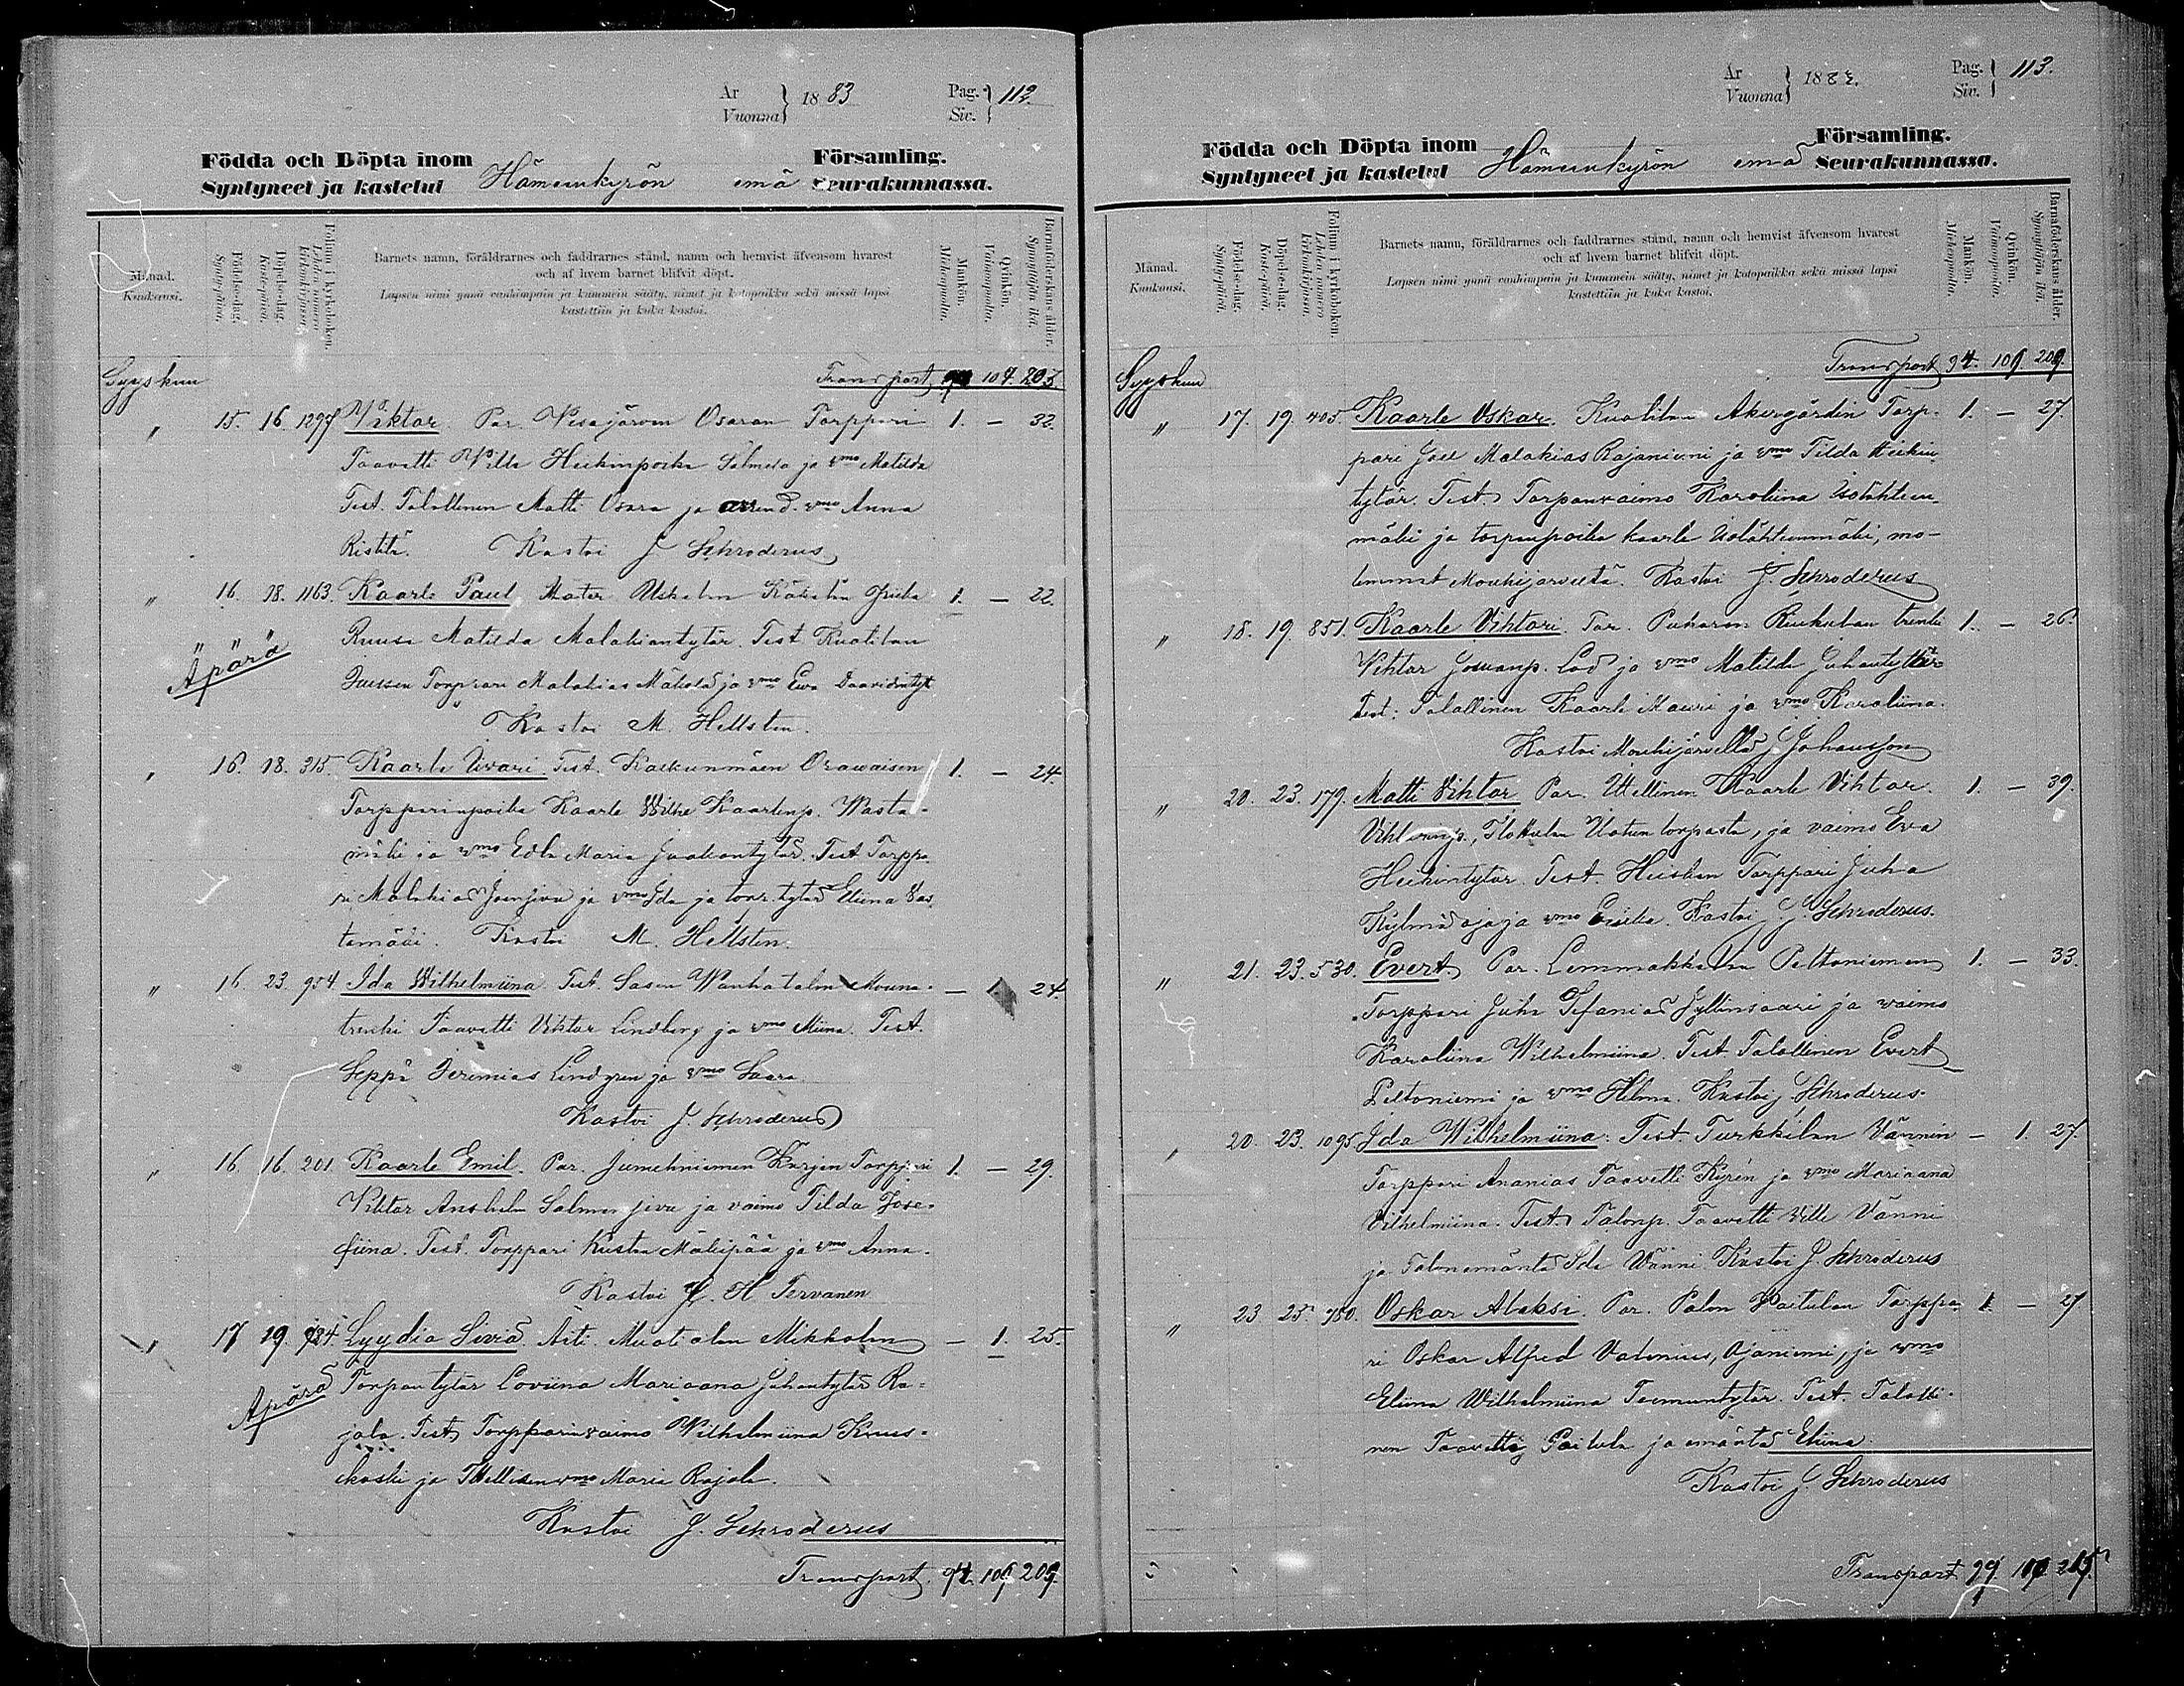 År
Vuonna } 1883
Pag.
Siv. } 112.
Födda och Döpta inom Hämeenkyrön emä Församling.
Syntyneet ja kastetut Seurakunnassa.
Månad.
Kuukausi.
Födelse-dag.
Syntypäivä.
Döpelse-dag.
Kaste-päivä.
Folium i kyrkoboken.
Lehden numero kirkonkirjassa.
Barnets namn, föräldrarnes och faddrarnes stånd, namn och hemvist äfvensom hvarest
och af hvem barnet blifvit döpt.
Lapsen nimi ynnä vanhimpain ja kummein sääty, nimet ja kotopaikka sekä missä lapsi
kastettiin ja kuka kastoi.
Mankön.
Miehenpuolia.
Qvinkön.
Vaimonpuolia.
Barnaföderskans ålder.
Synnyttäjän ikä.
Syyskuu Transport 104 203.
" 15. 16. 1297 Viktor. Par. Wesajärven Osaran Torppari 1. — 32.
Taavetti Wille Heikinpoika Salmela ja vmo Matilda
Test. Talollinen Matti Osara ja arrend. vmo Anna
Ristilä. Kastoi J Schroderus
" 16. 18. 1163. Kaarle Paul Mater Uskelan Kätkelän piika 1. — 22.
Äpärä Ruusa Matilda Malakiantytär. Test Kuotilan
Torppari Malakias Mäkelä ja vmo Eva Daavidintyt
Kastoi M. Hellsten.
" 16. 18. 315. Kaarle Iivari. Test. Kaskunmäen Orawaisen 1. — 24.
Torpparinpoika Kaarle Wilhe Kaarlenp. Wasta-
mäki ja vmo Edla Maria Jaakontytär. Test Torppa
ri Malakias Joensivu ja vmo Ida ja torp. tytär Eliina Vas
tamäki. Kastoi M. Hellsten.
" 16. 23. 954. Ida Wilhelmiina. Test. Sasin Wanhatalon Mouna- — 1. 24.
trenki Taavetti Viktor Lindberg ja vmo Miina. Test.
Seppä Jeremias Lindgren ja vmo Saara.
Kastoi J. Schroderus
" 16. 16. 201. Kaarle Emil. Par. Jumesniemen Kurjen Torppari 1. — 29.
Viktor Anshelm Salmensivu ja vaimo Tilda Jose-
fiina. Test. Torppari Kustaa Mäkipää ja vmo Anna.
Kastoi H. H Tervanen
" 17 19. 124. Lyydia Sivia. Äiti. Muotialan Mikkolan — 1. 25.
Äpärä Torpantytär Loviina Mariaana Juhantytär Ra-
jala. Test. Torpparinvaimo Wilhelmiina Kuus-
koski ja Itellisenvmo Maria Rajala.
Kastoi J. Schroderus
Transport. 94. 109 209.
År
Vuonna } 1883.
Pag.
Siv. } 113.
Födda och Döpta inom Hämeenkyrön emä Församling.
Syntyneet ja kastetut Seurakunnassa.
Månad.
Kuukausi.
Födelse-dag.
Syntypäivä.
Döpelse-dag.
Kaste-päivä.
Folium i kyrkoboken.
Lehden numero kirkonkirjassa.
Barnets namn, föräldrarnes och faddrarnes stånd, namn och hemvist äfvensom hvarest
och af hvem barnet blifvit döpt.
Lapsen nimi ynnä vanhimpain ja kummein sääty, nimet ja kotopaikka sekä missä lapsi
kastettiin ja kuka kastoi.
Mankön.
Miehenpuolia.
Qvinkön.
Vaimonpuolia.
Barnaföderskans ålder.
Synnyttäjän ikä.
Syyskuu Transport 94. 109 209.
" 17. 19. 405. Kaarle Oskar. Kuotilan Åkergårdin Torp- 1. — 27.
pari Joel Malakias Rajaniemi ja vmo Tilda Heikin
tytär. Test. Torpanvaimo Karoliina Isolähteen-
mäki ja torpanpoika Kaarle Isolähteenmäki, mo-
lemmat Mouhijärveltä. Kastoi J. Schroderus
" 18. 19. 851. Kaarle Vihtori. Par. Puharan Ruukulan trenki 1. — 26.
Vihtor Josuanp. Lod ja vmo Matilda Juhantytär
Test: Talollinen Kaarle Mauri ja vmo Karoliina.
Kastoi Mouhijärvellä J Johansson
" 20. 23. 179. Matti Vihtor Par. Itellinen Kaarle Vihtor 1. — 39.
Vihtorinp., torpasta, ja vaimo Eva
Heikintytär. Test. Heiskan Torppari Juha
Kylmäoja ja vmo Emilia. Kastoi J. Schroderus.
" 21. 23. 530. Evert Par. Lemmakkalan Peltoniemen 1. — 33.
Torppari Juha Tefanias Jyllinsaari ja vaimo
Karoliina Wilhelmiina. Test Talollinen Evert
Peltoniemi ja vmo Helma. Kastoi J. Schroderus.
" 20. 23. 1095. Ida Wilhelmiina. Test. Turkkilan Vännin — 1. 27.
Torppari Ananias Taavetti Kyrén ja vmo Mariaana
Vilhelmiina. Test. Talonp. Taavetti Ville Vänni
ja Talonemäntä Ida Vänni Kastoi J. Schroderus
" 23. 25. 780. Oskar Aleksi. Par. Palon Paitulan Torppa- 1. — 27
ri Oskar Alfred Valenius, Ojaniemi, ja vmo
Eliina Wilhelmiina Teemuntytär. Test. Talolli-
nen Taavetti Paitula ja emäntä Eliina.
Kastoi J. Schroderus
Transport 99